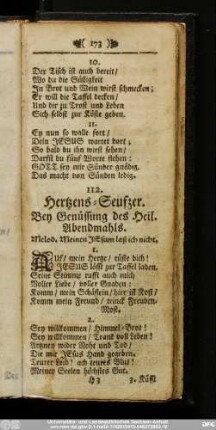 173
10.
Der Tisch ist auch bereit/
Wo du die Güßigkeit
In Brot und Wein wirst schmecken;
Er will die Taffel decken/
Und dir zu Trost und Leben
Sich selbst zur Köste geben.
11.
Ey nun so walle fort/
Dein JESUS wartet dort;
So bald du ihn wirst sehen/
Darfst du fünf Worte flehen:
GOTT sey mir Sünder gnädig.
Das macht von Sünden ledig.
112.
Hertzens-Seufzer.
Bey Genüssung des Heil.
Abendmahls.
Melod. Meinen JEsum laß ich nicht.
1.
AUf/ mein Hertze/ rüste dich!
JESUS läßt zur Taffel laden,
Seine Stimme rufft auch mich
Voller Liebe/ voller Gnaden:
Komm/ mein Schäflein/ hier ist Kost/
Komm mein Freund/ trinck Freuden-
Most.
2.
Sey willkommen/ Himmel-Brot!
Sey willkommen/ Tranck voll Leben!
Artzney wider Noht und Tod/
Die mir JEsus Hand gegeben.
Teurer Leib! ach teures Blut!
Meiner Seelen höchstes Gut.
H 3
3. Küßt